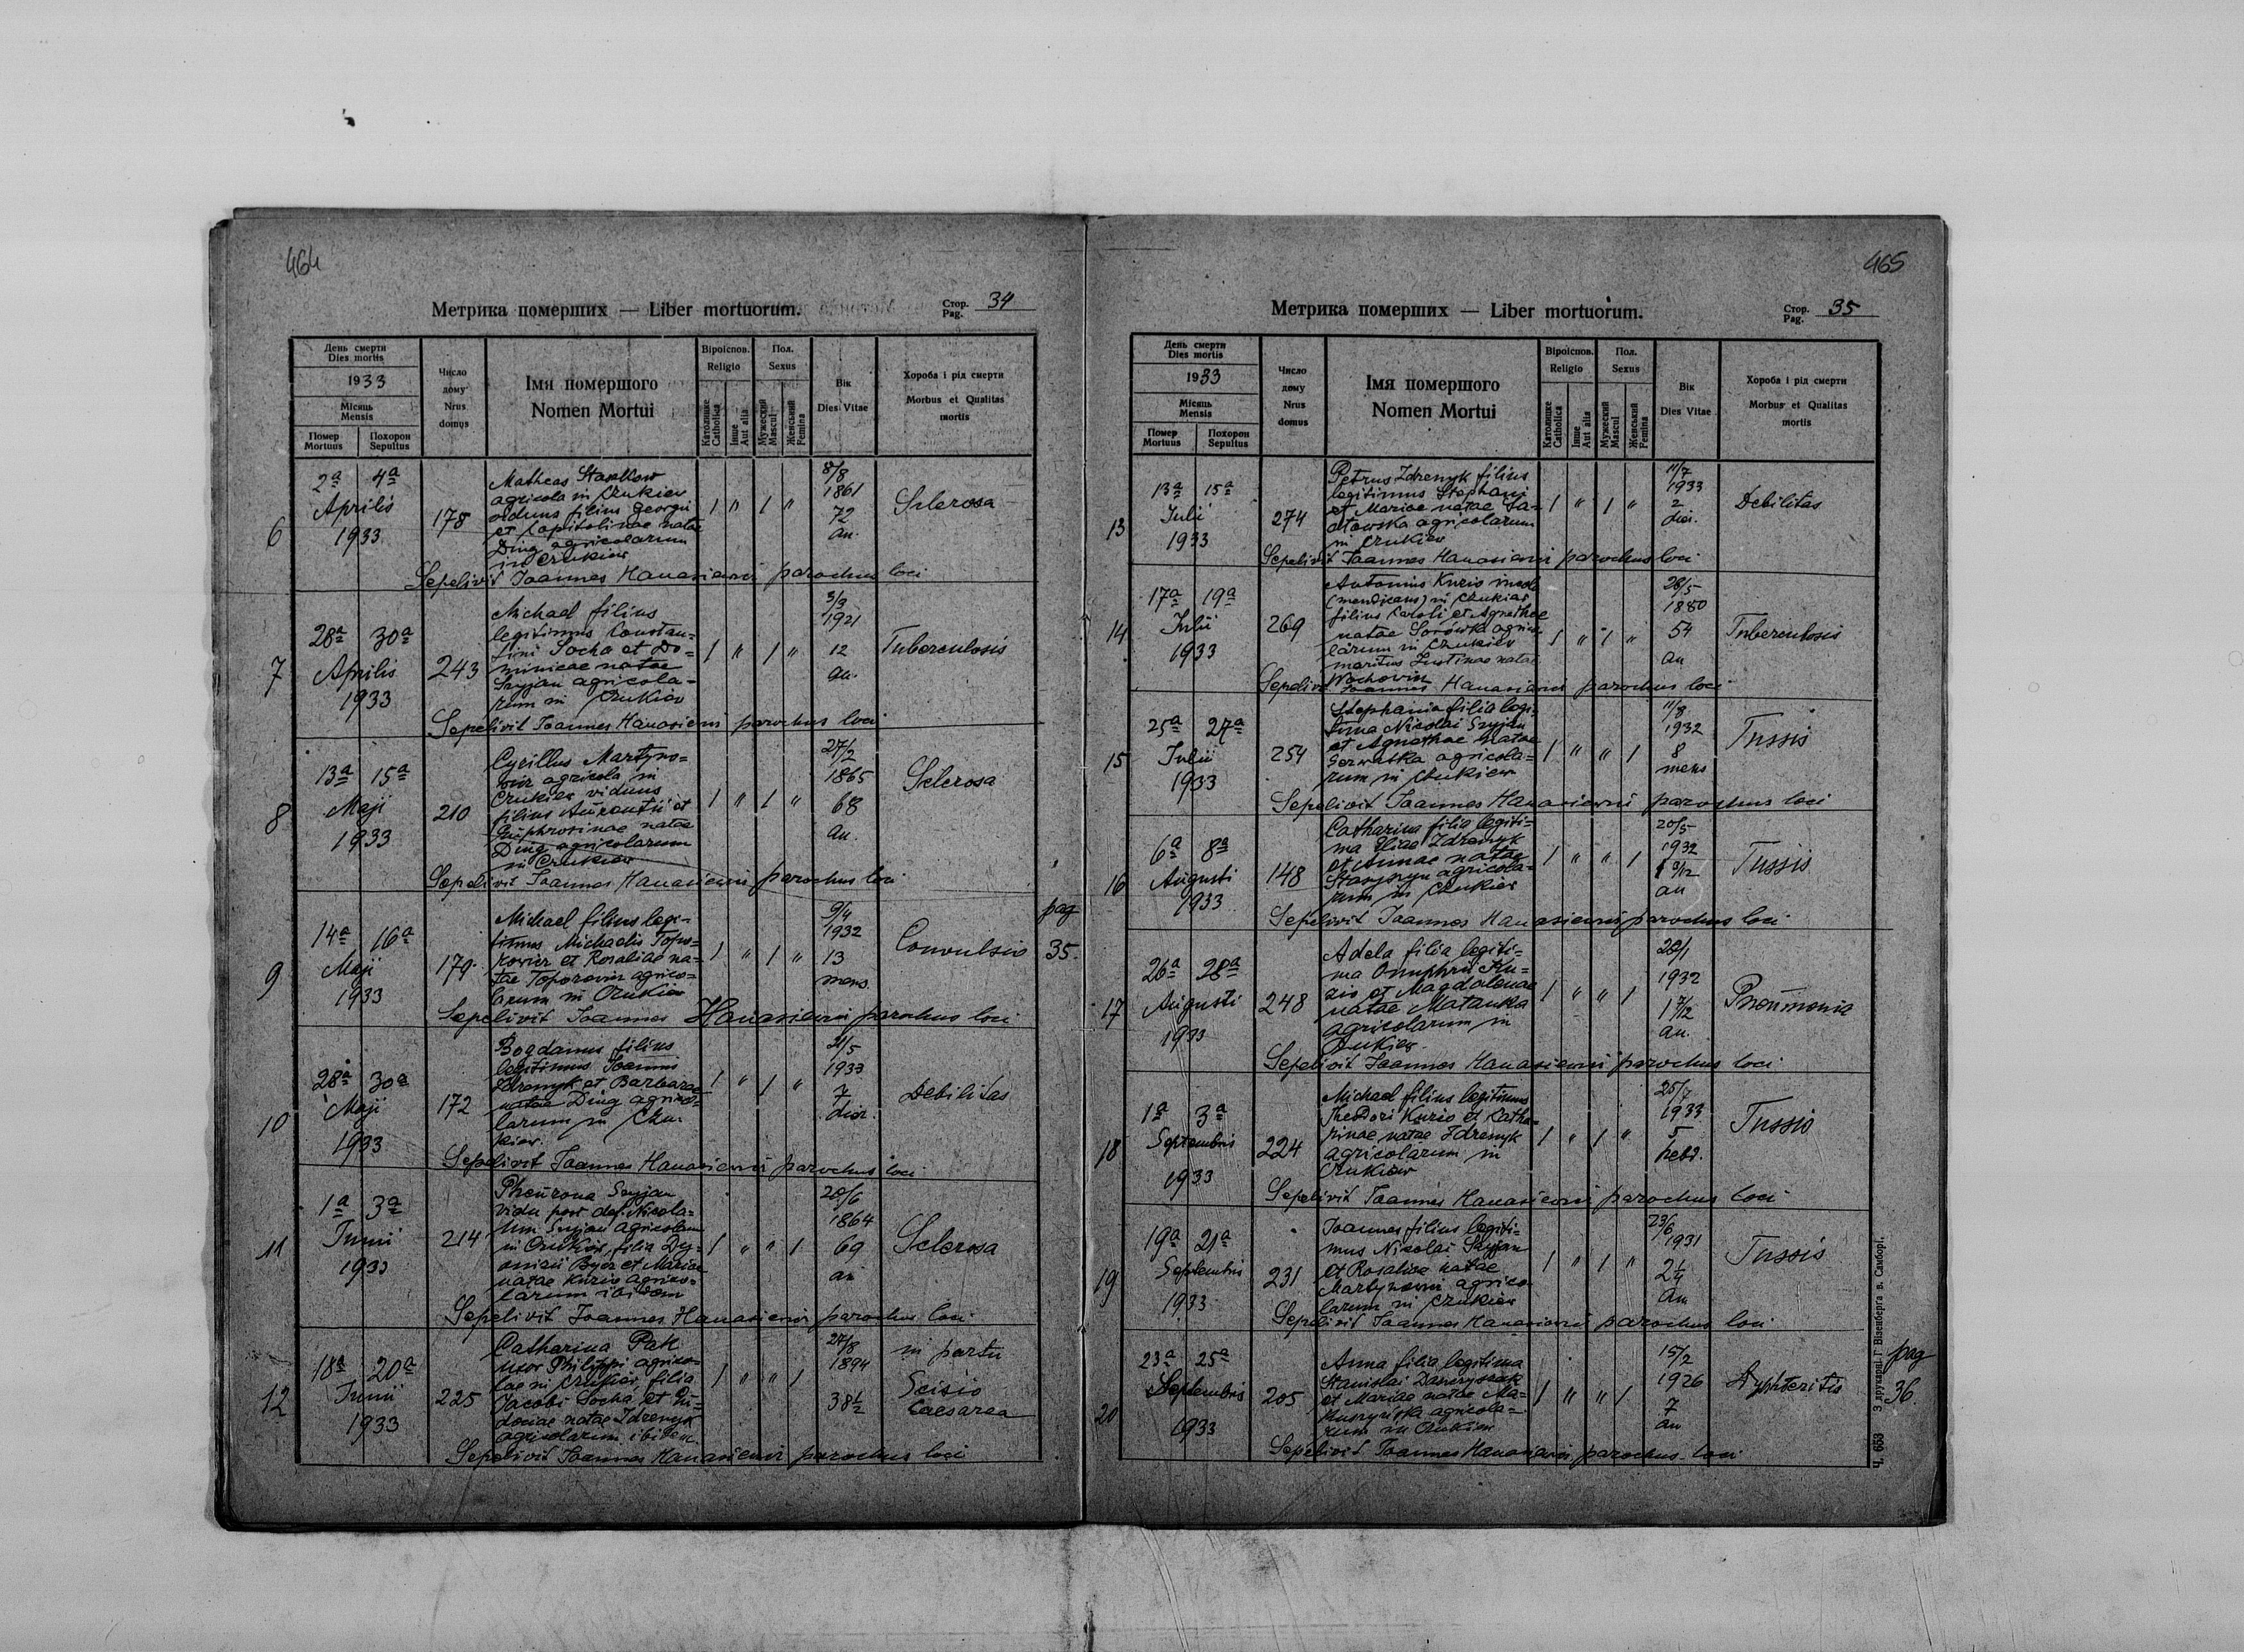 464
Метрика померших — Liber mortuorum.
Стор. Pag. 34
День смерти
Dies mortis
1933
Місяць
Mensis
Помер
Mortuus
Похорон
Sepultus
Число
дому
Nrus
domus
Імя помершого
Nomen Mortui
Віроіспов.
Religio
Католицке
Catholica
Інше
Aut alia
Пол.
Sexus
Мужеский
Mascul
Женський
Femina
Вік
Dies Vitae
Хороба і рід смерти
Morbus et Qualitas
mortis
6
2a 4a
Aprilis
1933
178
Matheas
agricola in Czukiew
viduus filius Georgii
et Capitolinae natae
Ding agricolarum
in Czukiew
1 " 1 "
8/8
1861
72
an.
Sclerosa
Sepelivit Joannes Hanasiewicz parochus loci
7
28a 30a
Aprilis
1933
243
Michael filius
legitimus Constan=
tini Socha et Do=
minicae natae
Szyjan agricola=
rum in Czukiew
1 " 1 "
3/3
1921
12
an.
Tuberculosis
Sepelivit Joannes Hanasiewicz parochus loci
8
13a 15a
Maji
1933
210
Cyrillus Martyno=
wicz agricola in
Czukiew viduus
filius et
Euphrosinae natae
Ding agricolarum
in Czukiew
1 " 1 "
27/2
1865
68
an.
Sclerosa
Sepelivit Joannes Hanasiewicz parochus loci
9
14a 16a
Maji
1933
179
Michael filius legi=
timus Michaelis Topo=
rowicz et Rosaliae na=
tae Toporowicz agrico=
larum in Czukiew
1 " 1 "
9/4
1932
13
mens.
Convulsio
pag
35.
Sepelivit Joannes Hanasiewicz parochus loci
10
28a 30a
Maji
1933
172
Bogdanus filius
legitimus Joannis
Zdrenyk et Barbarae
natae Ding agrico=
larum in Czu=
kiew.
1 " 1 "
21/5
1933
7
dier.
Debilitas
Sepelivit Joannes Hanasiewicz parochus loci
11
1a 3a
Junii
1933
214
Szyjan
vidu post def. Nicola=
um Szyjan agricolam
in Czukiew, filia Dy=
onisii et Mariae
natae Kuzio agrico=
larum ibidem
1 " " 1
20/6
1864
69
an
Sclerosa
Sepelivit Joannes Hanasiewicz parochus loci
12
18a 20a
Junii
1933
225
Catharina Pak
uxor Philippi agrico=
lae in Czukiew, filia
Jacobi Socha et Eu=
dociae natae Zdrenyk
agricolarum ibidem.
1 " " 1
27/8
1894
38 1/2
in partu
Scisio
Caesarea
Sepelivit Joannes Hanasiewicz parochus loci
465
Метрика померших — Liber mortuorum.
Стор. Pag. 35
День смерти
Dies mortis
1933
Місяць
Mensis
Помер
Mortuus
Похорон
Sepultus
Число
дому
Nrus
domus
Імя помершого
Nomen Mortui
Віроіспов.
Religio
Католицке
Catholica
Інше
Aut alia
Пол.
Sexus
Мужеский
Mascul
Женський
Femina
Вік
Dies Vitae
Хороба і рід смерти
Morbus et Qualitas
mortis
13
13a 15a
Julii
1933
274
Petrus Zdrenyk filius
legitimus Stephani
et Mariae natae
agricolarum
in Czukiew
1 " 1 "
11/7
1933
2
dier.
Debilitas
Sepelivit Joannes Hanasiewicz parochus loci
14
17a 19a
Julii
1933
269
Antonius Kuzio incola
(mendicans) in Czukiew
filius Caroli et Agnethae
natae agrico=
larum in Czukiew
maritus Justinae natae
1 " 1 "
28/5
1880
54
an
Tuberculosis
Sepelivit Joannes Hanasiewicz parochus loci
15
25a 27a
Julii
1933
254
Stephania filia legi=
tima Nicolai Szyjan
et Agnethae natae
Serwatka agricola=
rum in Czukiew
1 " " 1
11/8
1932
8
mens
Tussis
Sepelivit Joannes Hanasiewicz parochus loci
16
6a 8a
Augusti
1933
148
Catharina filia legiti=
ma Eliae Zdrenyk
et Annae natae
agricola=
rum in Czukiew
1 " " 1
20/5
1932
an
Tussis
Sepelivit Joannes Hanasiewicz parochus loci
17
26a 28a
Augusti
1933
248
Adela filia legiti=
ma Onuphrii Ku=
zio et Magdalenae
natae Matanka
agricolarum in
Czukiew.
1 " " 1
28/1
1932
1 7/12
an.
Pneumonia
Sepelivit Joannes Hanasiewicz parochus loci
18
1a 3a
Septembris
1933
224
Michael filius legitimus
Theodori Kuzio et Catha=
rinae natae Zdrenyk
agricolarum in
Czukiew
1 " 1 "
25/7
1933
5
hebd.
Tussis
Sepelivit Joannes Hanasiewicz parochus loci
19
19a 21a
Septembris
1933
231
Joannes filius legiti=
mus Nicolai Szyjan
et Rosaliae natae
Martynowicz agrico=
larum in Czukiew
1 " 1 "
23/6
1931
2 1/4
an
Tussis
Sepelivit Joannes Hanasiewicz parochus loci
20
23a 25a
Septembris
1933
205
Anna filia legitima
Stanislai
et Mariae natae
agricola=
rum in Czukiew
1 " " 1
15/2
1926
7
an
Dyphteritis
pag
36.
Sepelivit Joannes Hanasiewicz parochus loci
Ч. 653 З друкарні Г Візенберга в. Самборі.